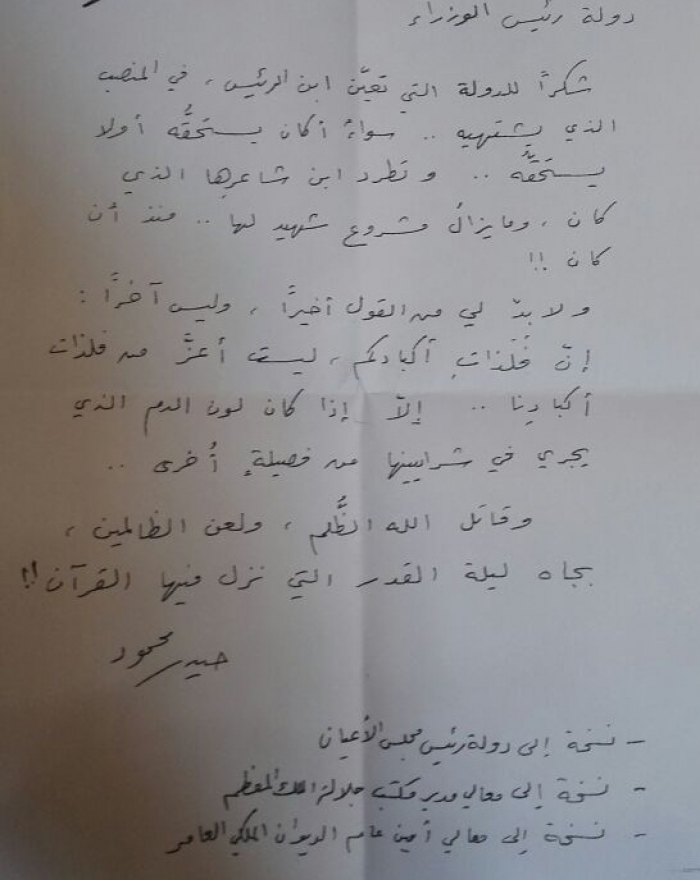 دولة رئيس الوزراء
شكراً للدولة التي تعيّن ابن الرئيس، في المنصب
الذي يشتهيه .. سواءً أكان يستحقُّه أولا
يستحقُّه .. وتطرد ابن شاعرها الذي
كان، ومايزالُ مشروع شهيد لها .. منذ أن
كان !!
ولا بدّ لي من القول أخيراً، وليس آخراً :
إنّ فُلْذاتِ أكبادكم، ليست أعزَّ من فلذات
أكبادِنا .. إلاّ إذا كان لون الدم الذي
يجري في شرايينها من فصيلةٍ أُخرى ..
وقاتل الله الظُّلم، ولعن الظالمين،
بجاه ليلة القدر التي نزل فيها القرآن !!
حيدر محمود
- نسخة إلى دولة رئيس مجلس الأعيان
- نسخة إلى معالي مدير مكتب جلالة الملك المعظم
- نسخة إلى معالي أمين عام الديوان الملكي العامر